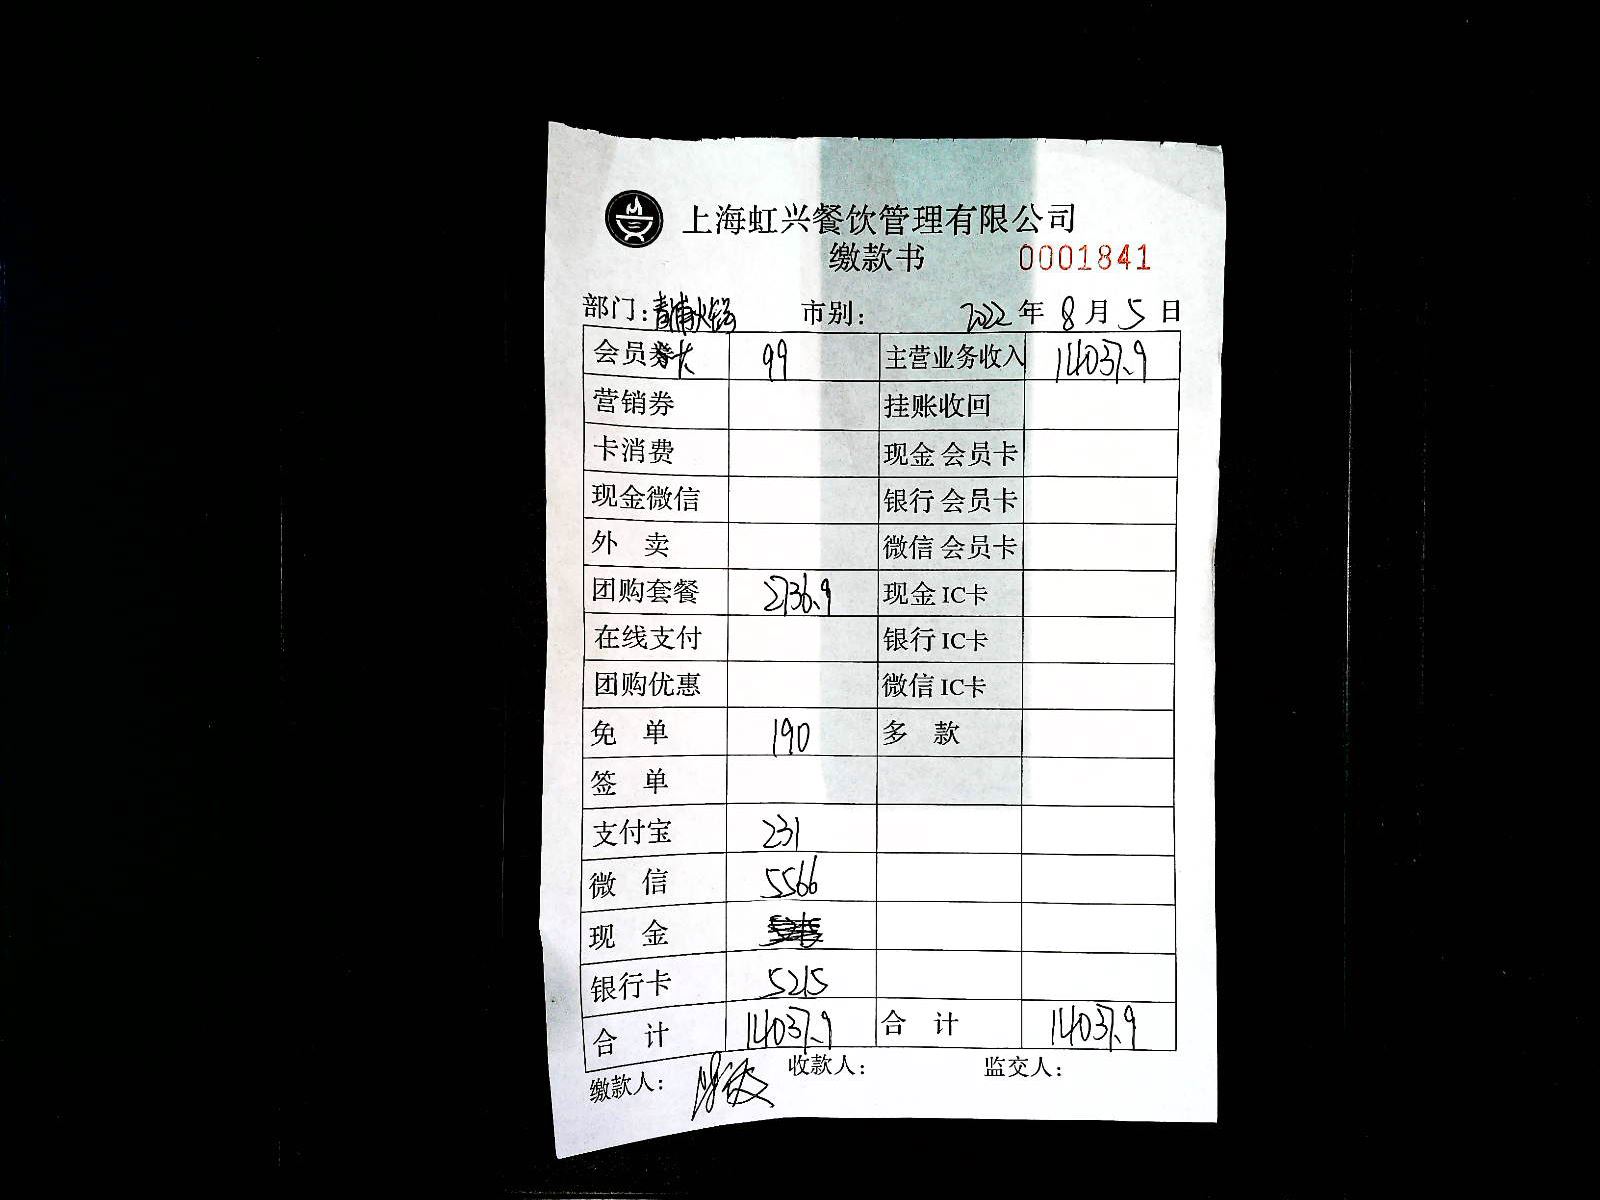 上海虹兴餐饮管理有限公司
缴款书 0001841
部门: 青浦火焰 市别: 2022 年 8 月 5 日
会员卡 99 主营业务收入 14037.9
营销券 挂账收回
卡消费 现金 会员卡
现金微信 银行 会员卡
外 卖 微信 会员卡
团购套餐 2736.9 现金 IC卡
在线支付 银行 IC卡
团购优惠 微信 IC卡
免 单 190 多 款
签 单
支付宝 231
微 信 5566
现 金
银行卡 5215
合 计 14037.9 合 计 14037.9
缴款人: 收款人: 监交人: